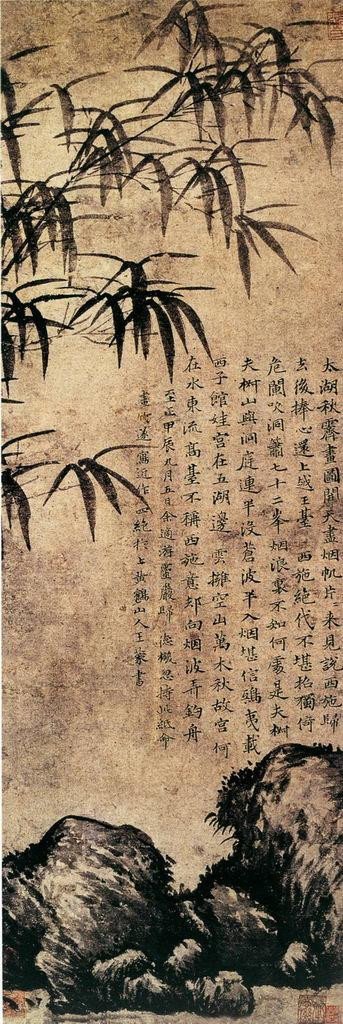 太湖秋霽畫圖開天盡烟帆片〻來見說西施歸
去後捧心還上越王臺 西施絕代不堪招獨倚
危闌吹洞簫七十二峯烟浪裏不知何處是夫椒
夫椒山與洞庭連半沒蒼波半入烟堪信鴟夷載
西子館娃宮在五湖邊 雲擁空山萬木秋故宮何
在水東流高臺不稱西施意却向烟波弄釣舟
至正甲辰九月五日余適游靈巖歸德機忽持此紙命
畫竹遂寫近作四絕於上黃鶴山人王蒙書